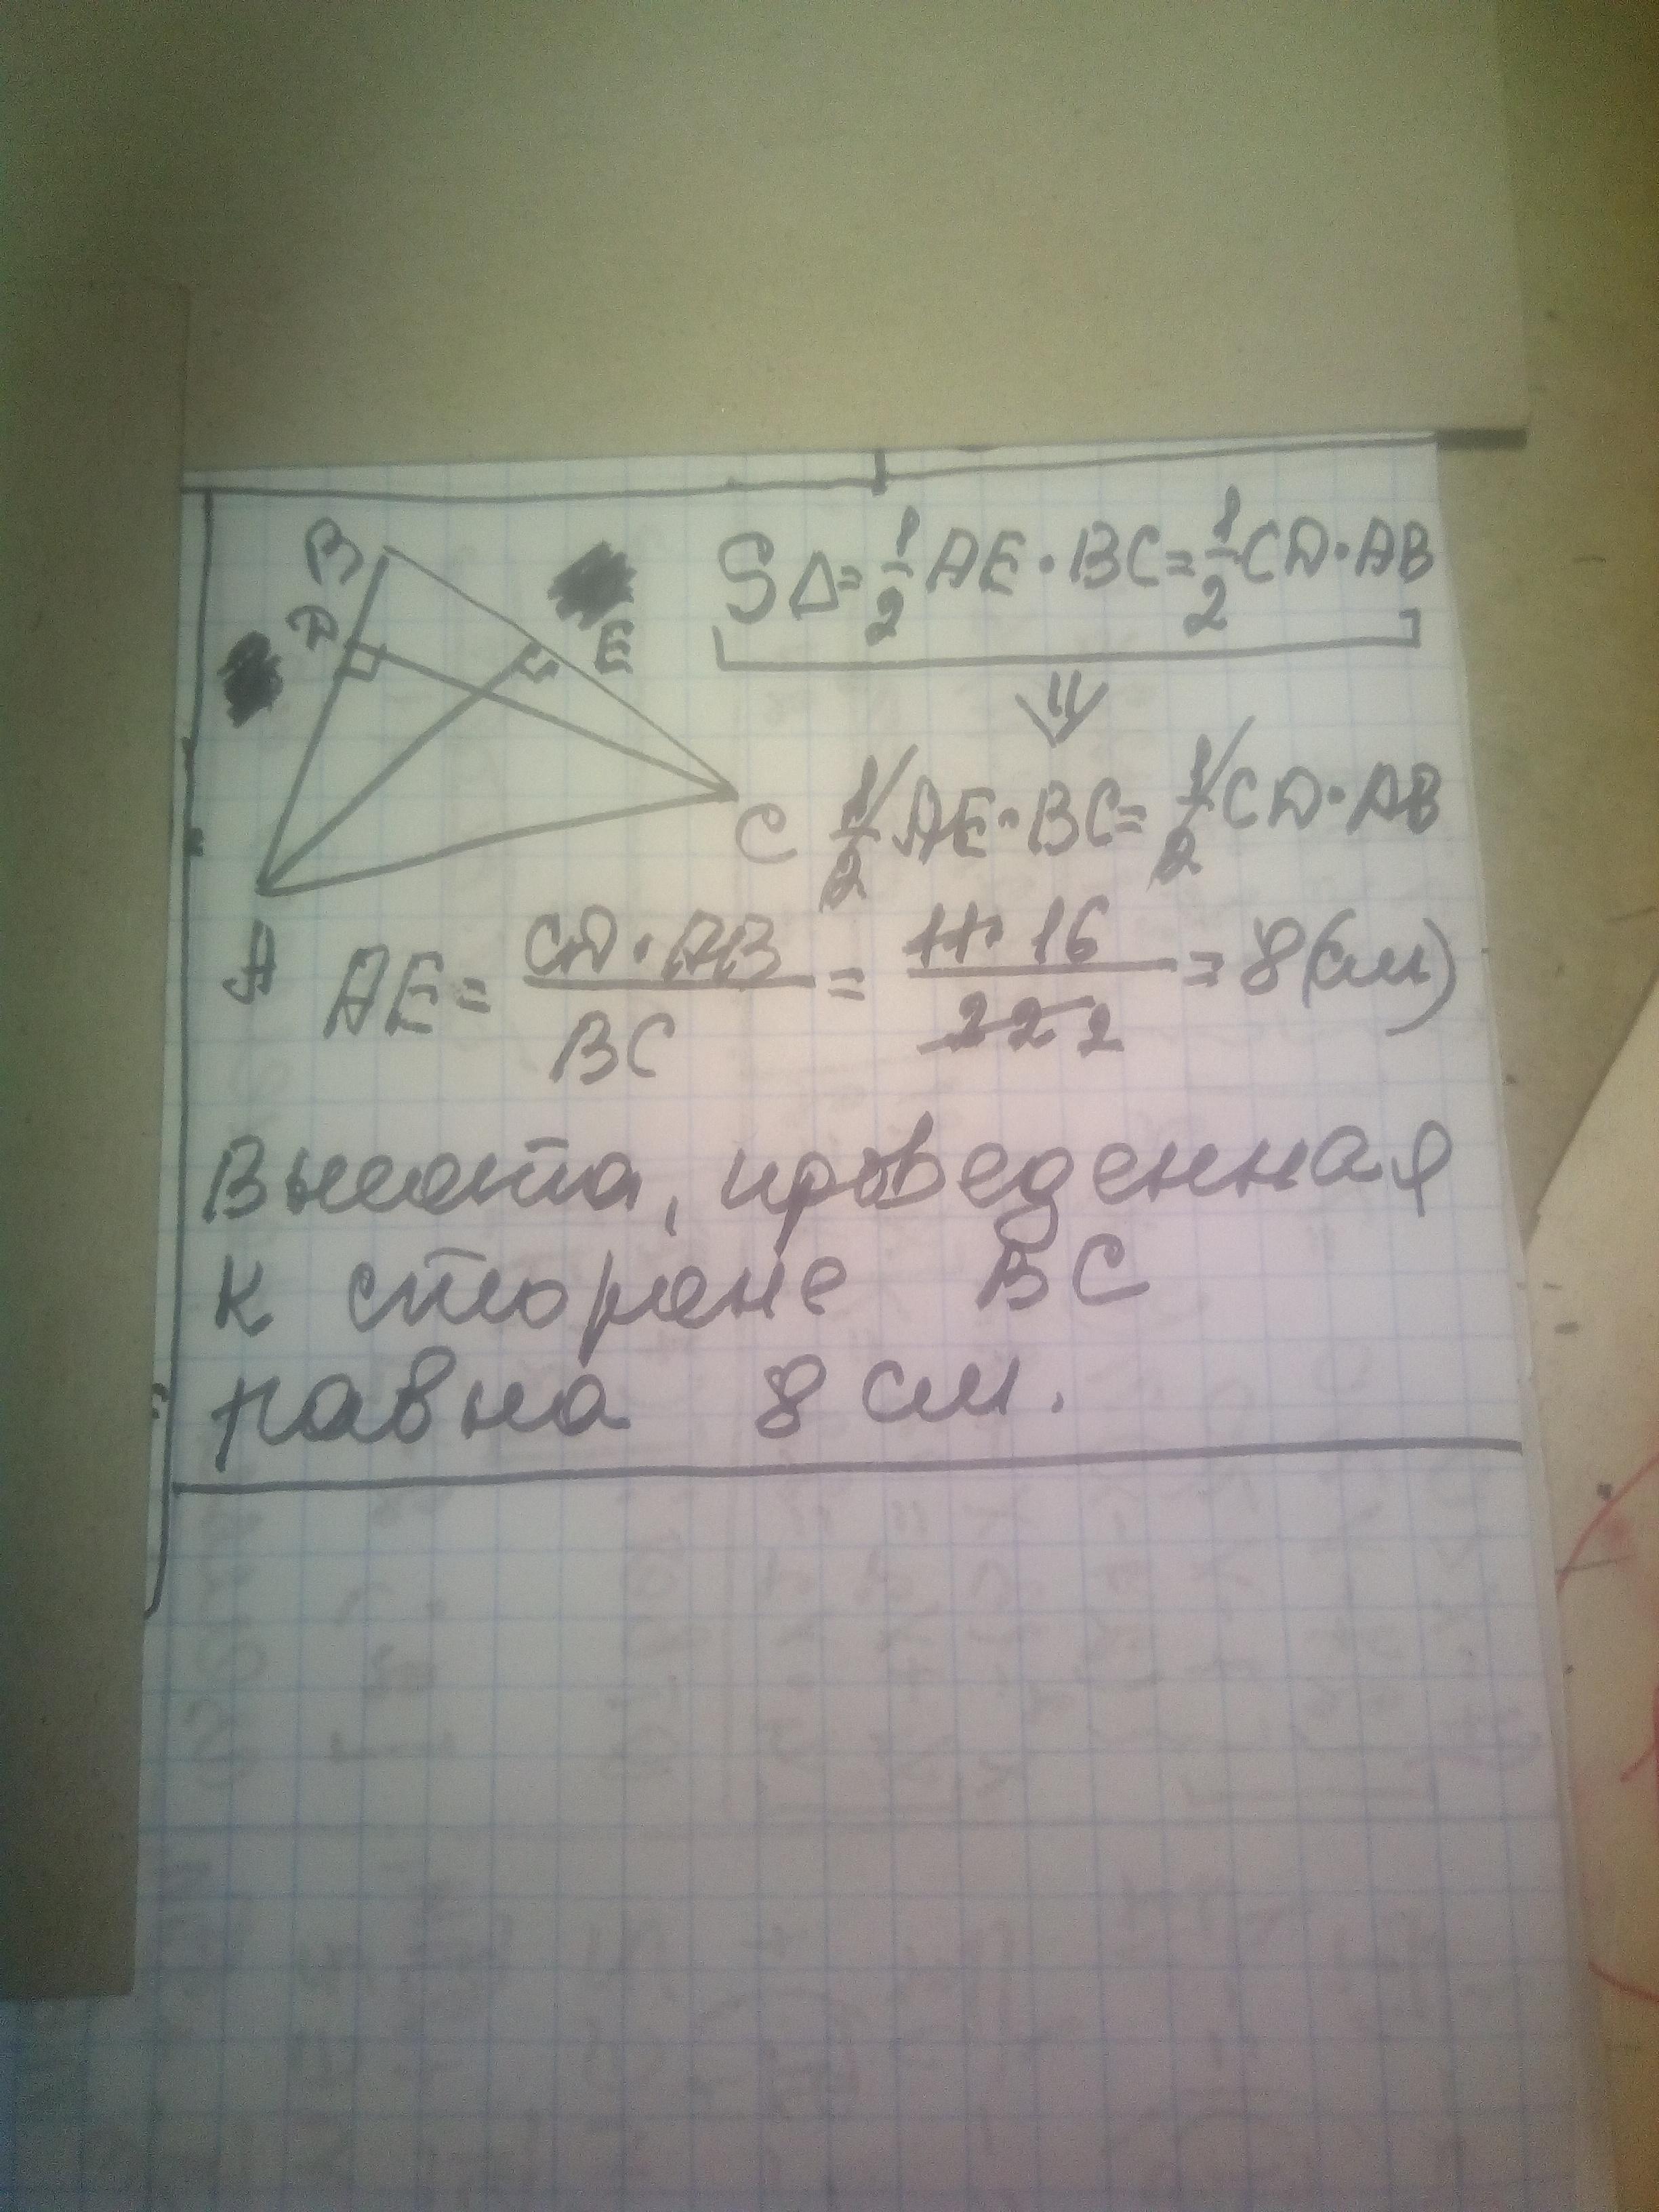 B
D
E
C
A
S△=1/2 AE·BC=1/2 CD·AB
⇓
1/2 AE·BC=1/2 CD·AB
AE= CD·AB/BC = 11·16/22 2 = 8(см)
Высота, проведенная
к стороне BC
равна 8 см.